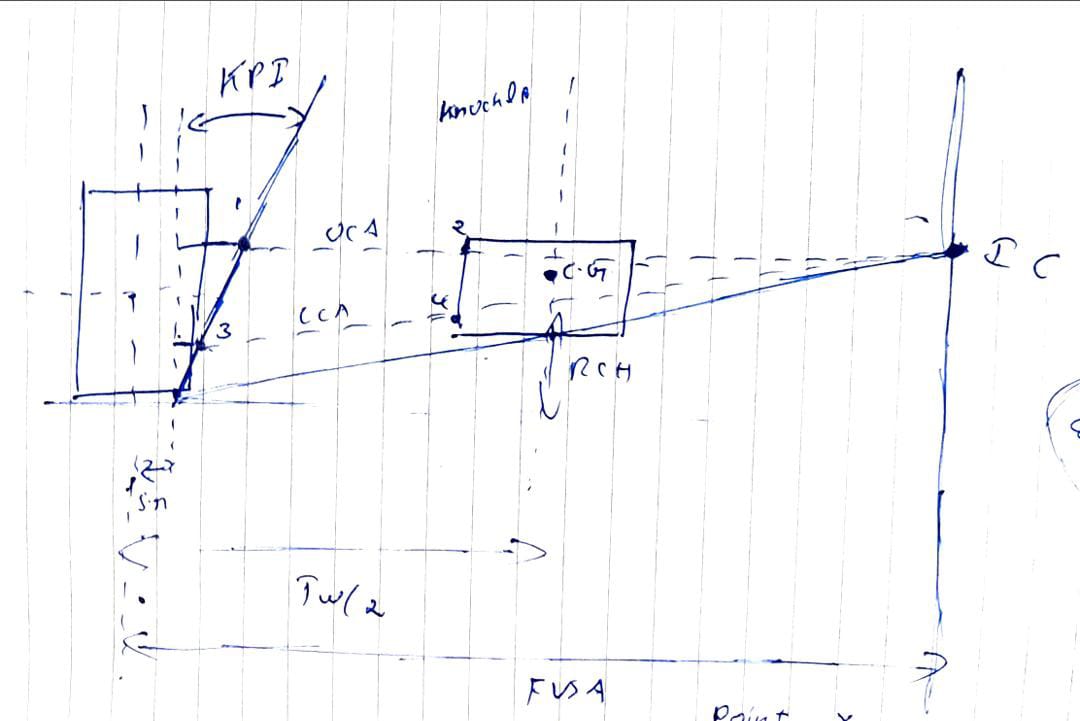 KPI
Knuckle
1
UCA
2
C.G
I C
3
LCA
4
RCH
Tw/2
FVSA
Point x